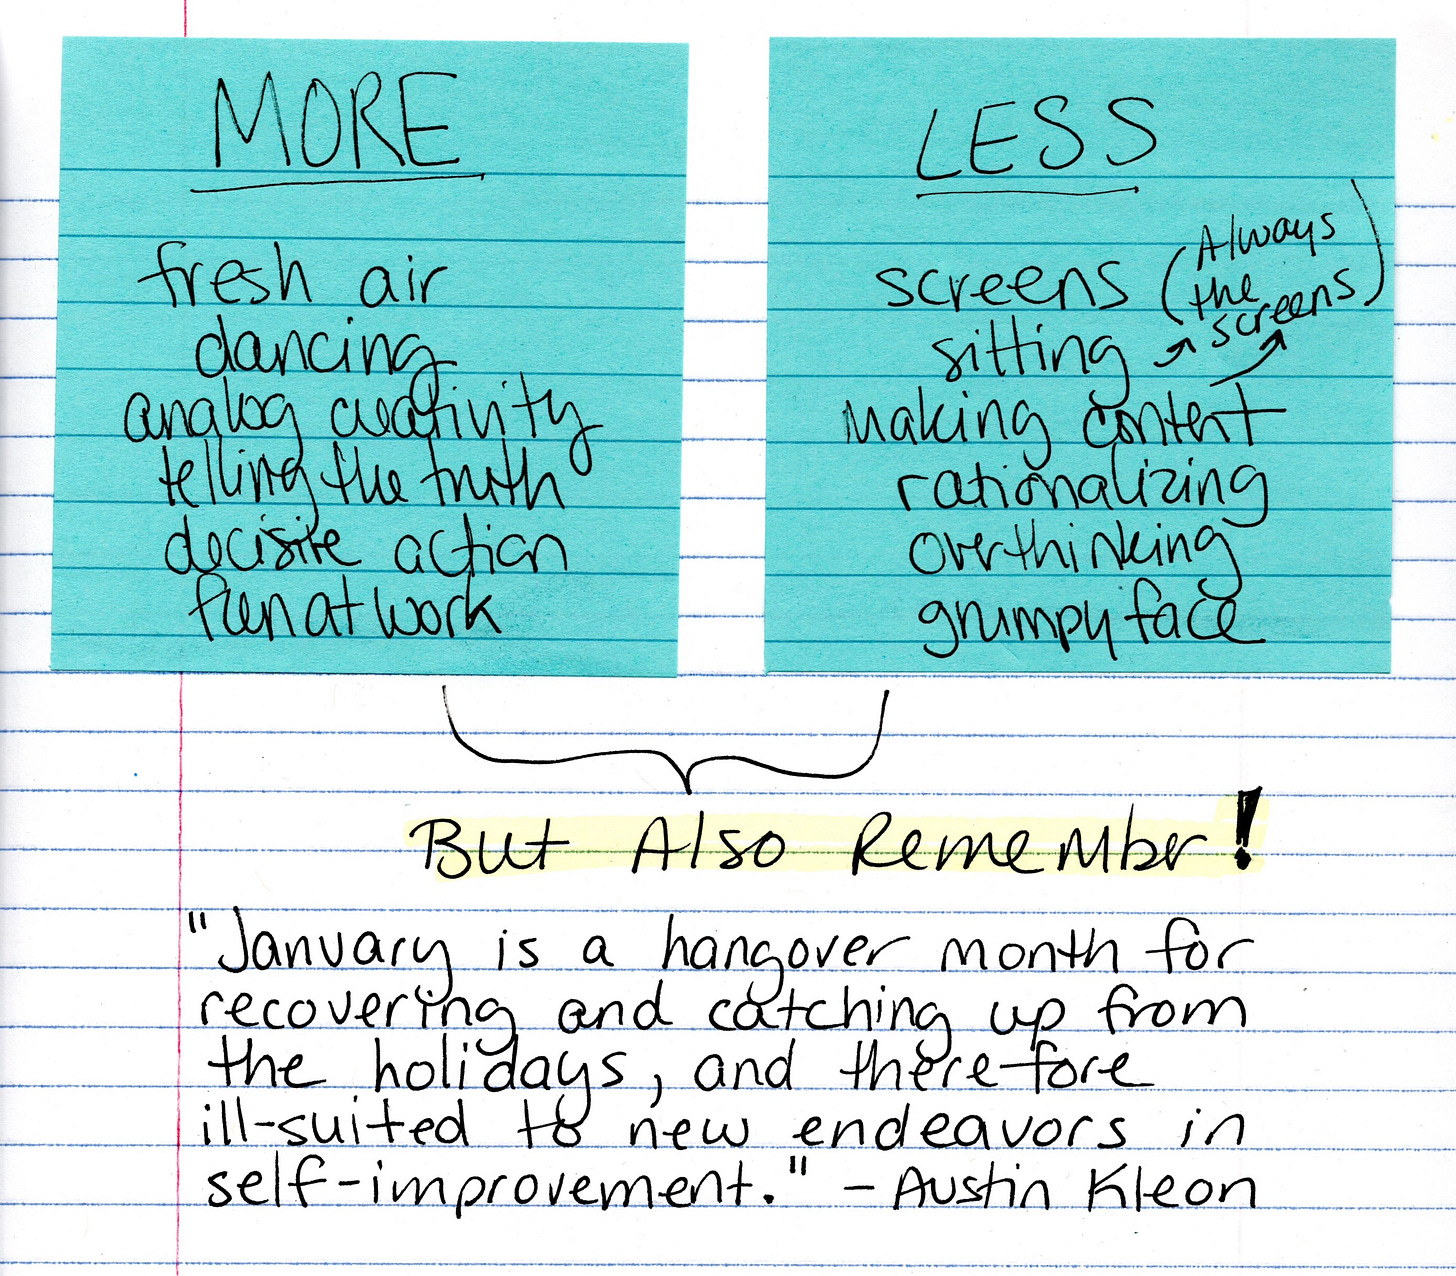 MORE
fresh air
dancing
analog creativity
telling the truth
decisive action
fun at work
LESS
screens (Always
the
screens)
sitting
making content
rationalizing
overthinking
grumpy face
But Also Remember!
"January is a hangover month for
recovering and catching up from
the holidays, and therefore
ill-suited to new endeavors in
self-improvement." - Austin Kleon